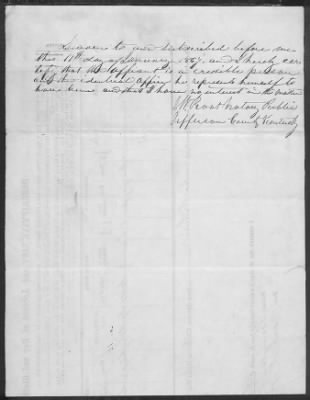 Sworn to and subscribed before me
this 11th day of January 1867. and I hereby cer
tify that the affiant is a credible person
and the identical officer he represents himself to
have been and that I have no interest in the matter
Notary Public
Jefferson County Kentucky